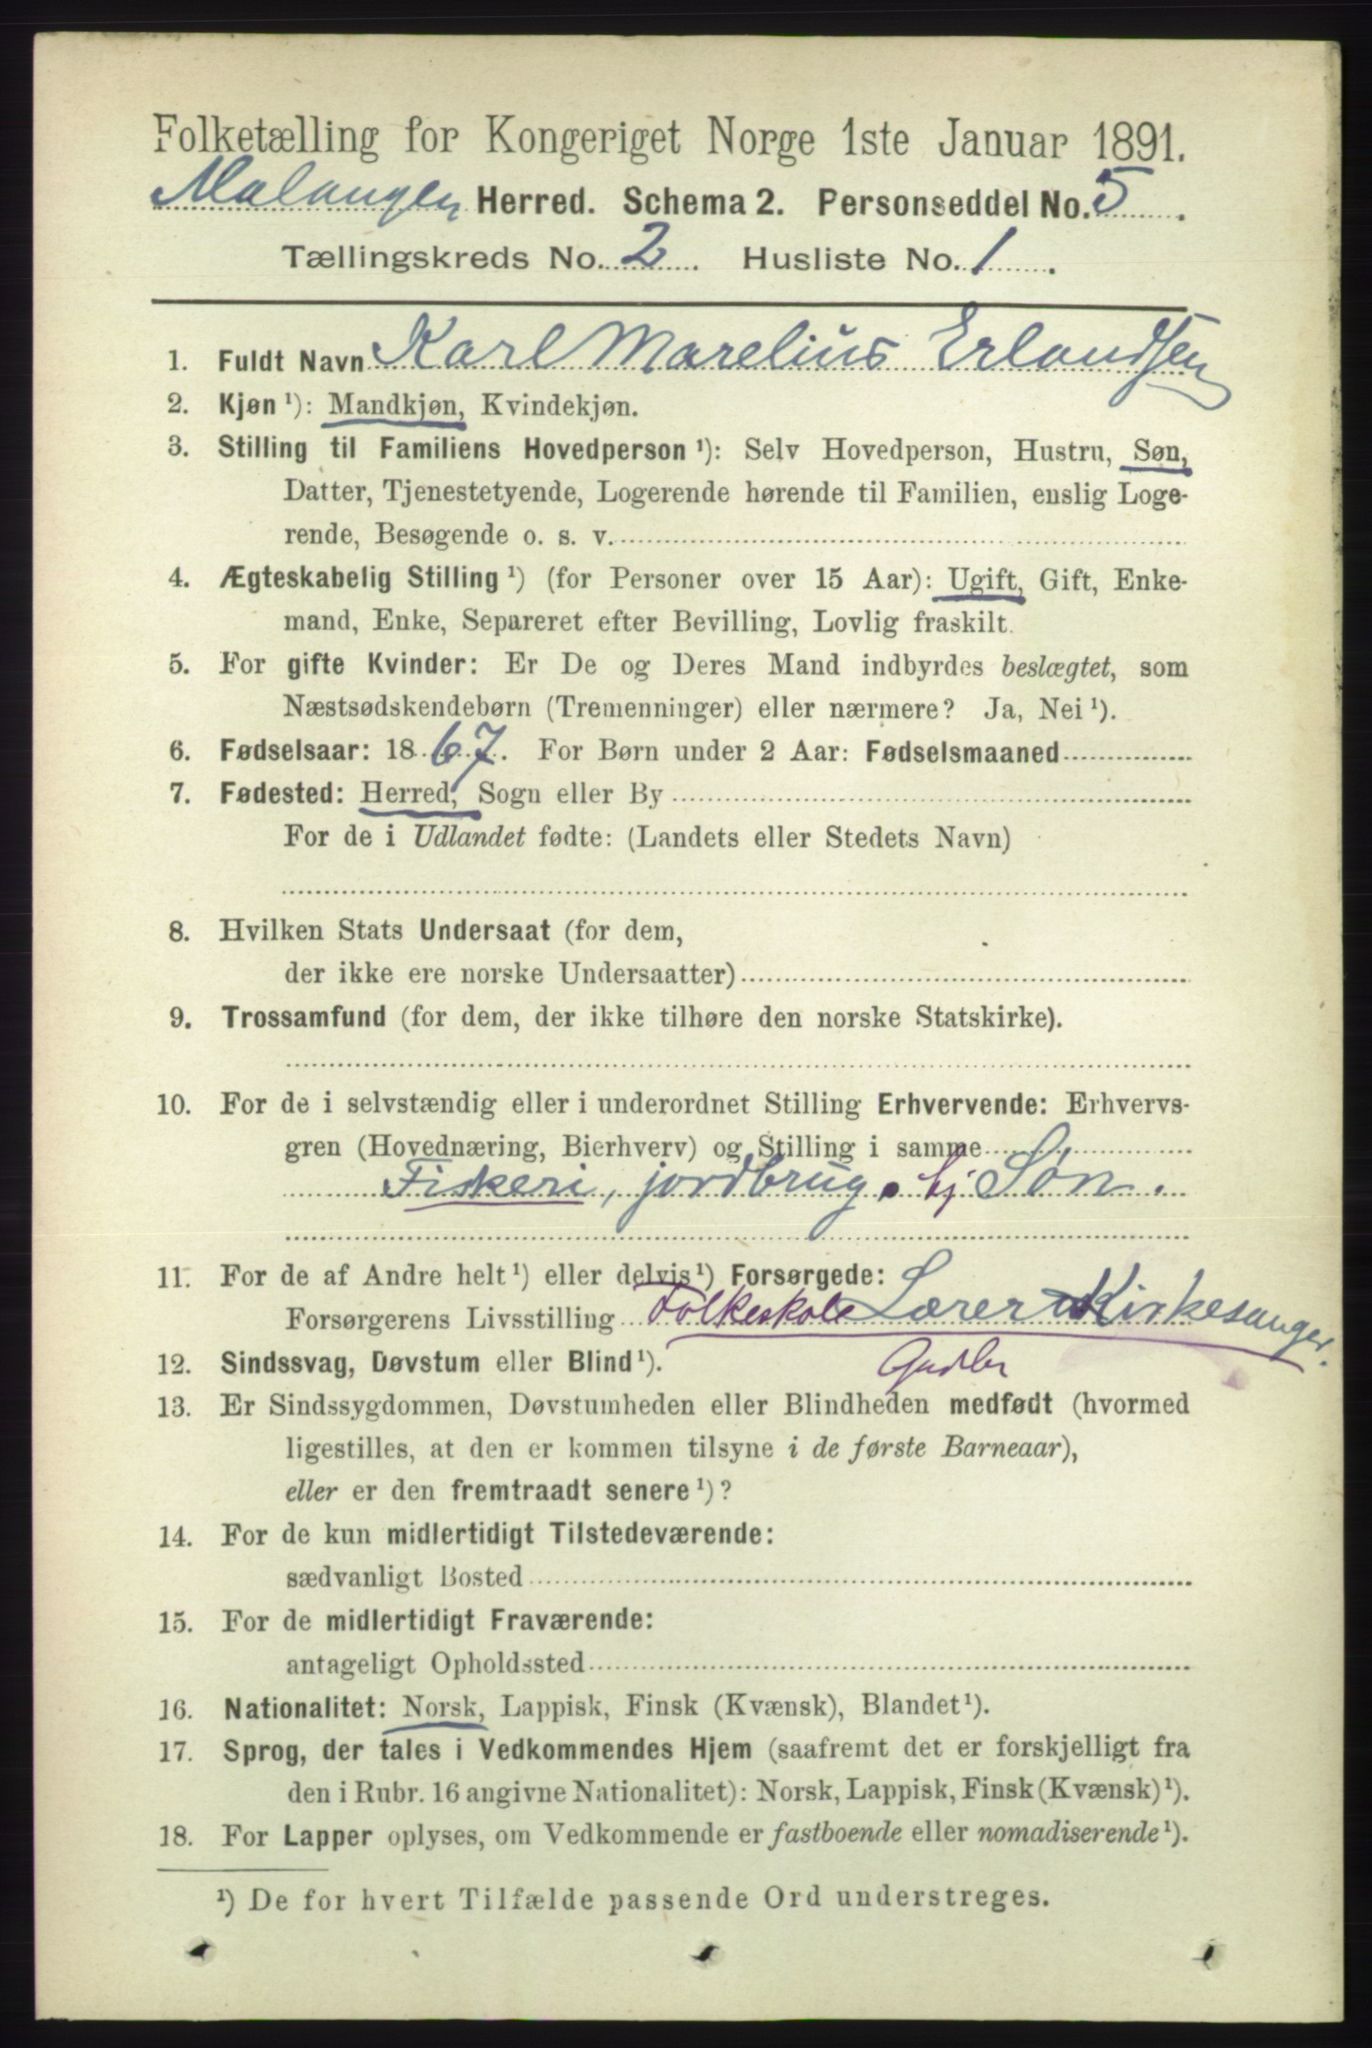 Folketælling for Kongeriget Norge 1ste Januar 1891.
Malangen Herred. Schema 2. Personseddel No. 5.
Tællingskreds No. 2. Husliste No. 1.
1. Fuldt Navn Karl Marelius Erlandsen
2. Kjøn ¹): Mandkjøn, Kvindekjøn.
3. Stilling til Familiens Hovedperson ¹): Selv Hovedperson, Hustru, Søn,
Datter, Tjenestetyende, Logerende hørende til Familien, enslig Loge-
rende, Besøgende o. s. v.
4. Ægteskabelig Stilling ¹) (for Personer over 15 Aar): Ugift, Gift, Enke-
mand, Enke, Separeret efter Bevilling, Lovlig fraskilt.
5. For gifte Kvinder: Er De og Deres Mand indbyrdes beslægtet, som
Næstsødskendebørn (Tremenninger) eller nærmere? Ja, Nei ¹).
6. Fødselsaar: 1867. For Børn under 2 Aar: Fødselsmaaned
7. Fødested: Herred, Sogn eller By
For de i Udlandet fødte: (Landets eller Stedets Navn)
8. Hvilken Stats Undersaat (for dem,
der ikke ere norske Undersaatter)
9. Trossamfund (for dem, der ikke tilhøre den norske Statskirke).
10. For de i selvstændig eller i underordnet Stilling Erhvervende: Erhvervs-
gren (Hovednæring, Bierhverv) og Stilling i samme
Fiskeri, jordbrug, hj Søn.
11. For de af Andre helt ¹) eller delvis ¹) Forsørgede:
Forsørgerens Livsstilling Folkeskole Lærer Kirkesanger.
12. Sindssvag, Døvstum eller Blind ¹). Gudbr
13. Er Sindssygdommen, Døvstumheden eller Blindheden medfødt (hvormed
ligestilles, at den er kommen tilsyne i de første Barneaar),
eller er den fremtraadt senere ¹)?
14. For de kun midlertidigt Tilstedeværende:
sædvanligt Bosted
15. For de midlertidigt Fraværende:
antageligt Opholdssted
16. Nationalitet: Norsk, Lappisk, Finsk (Kvænsk), Blandet ¹).
17. Sprog, der tales i Vedkommendes Hjem (saafremt det er forskjelligt fra
den i Rubr. 16 angivne Nationalitet): Norsk, Lappisk, Finsk (Kvænsk) ¹).
18. For Lapper oplyses, om Vedkommende er fastboende eller nomadiserende ¹).
¹) De for hvert Tilfælde passende Ord understreges.